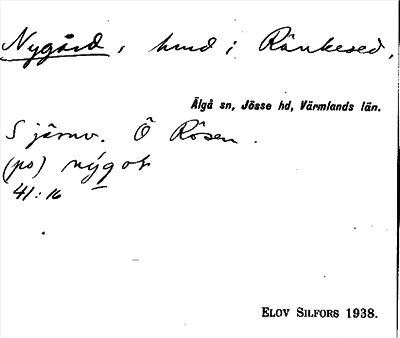 Nygård, hmd i Ränkesed,
Älgå sn, Jösse hd, Värmlands län.
S järnv. Ö Rösen.
(po) nýgot
41:16
ELOV SILFORS 1938.